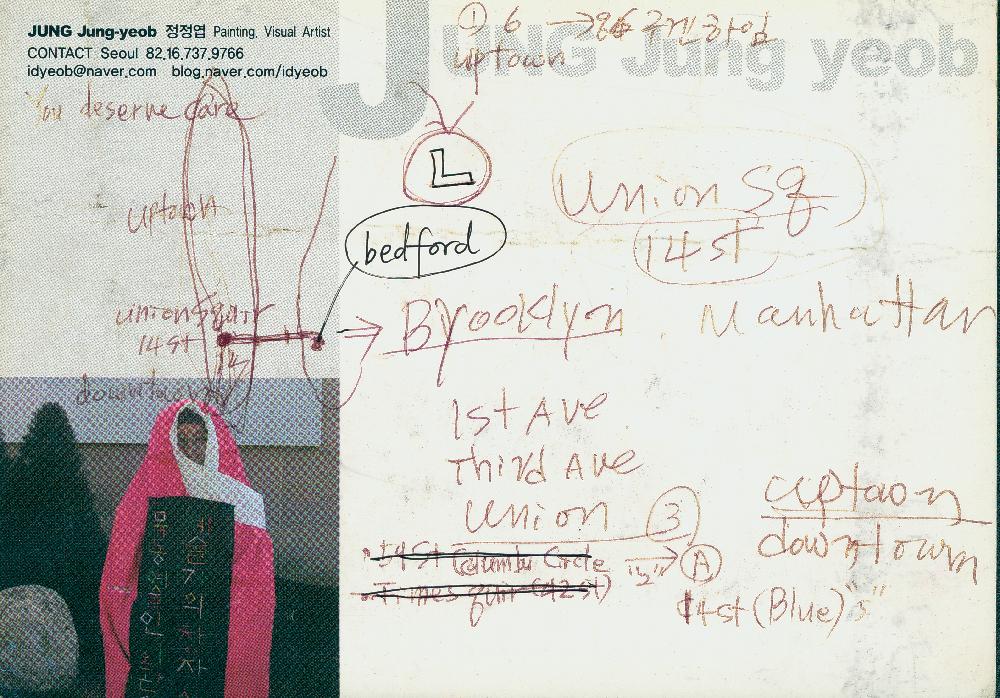 JUNG Jung-yeob 정정엽 Painting, Visual Artist
CONTACT Seoul 82.16.737.9766
idyeob@naver.com blog.naver.com/idyeob
JUNG Jung yeob
You deserve care
① 6 → 86 구겐하임
uptown
L
bedford
Union Sq
14st
uptown
union Squir
14st
downtown
→ Brooklyn . Manhattan
1st Ave
Third Ave
Union ③
14st Columbu Circle → Ⓐ
Times quir (42st)
14st (Blue) "3"
uptaon
downtown